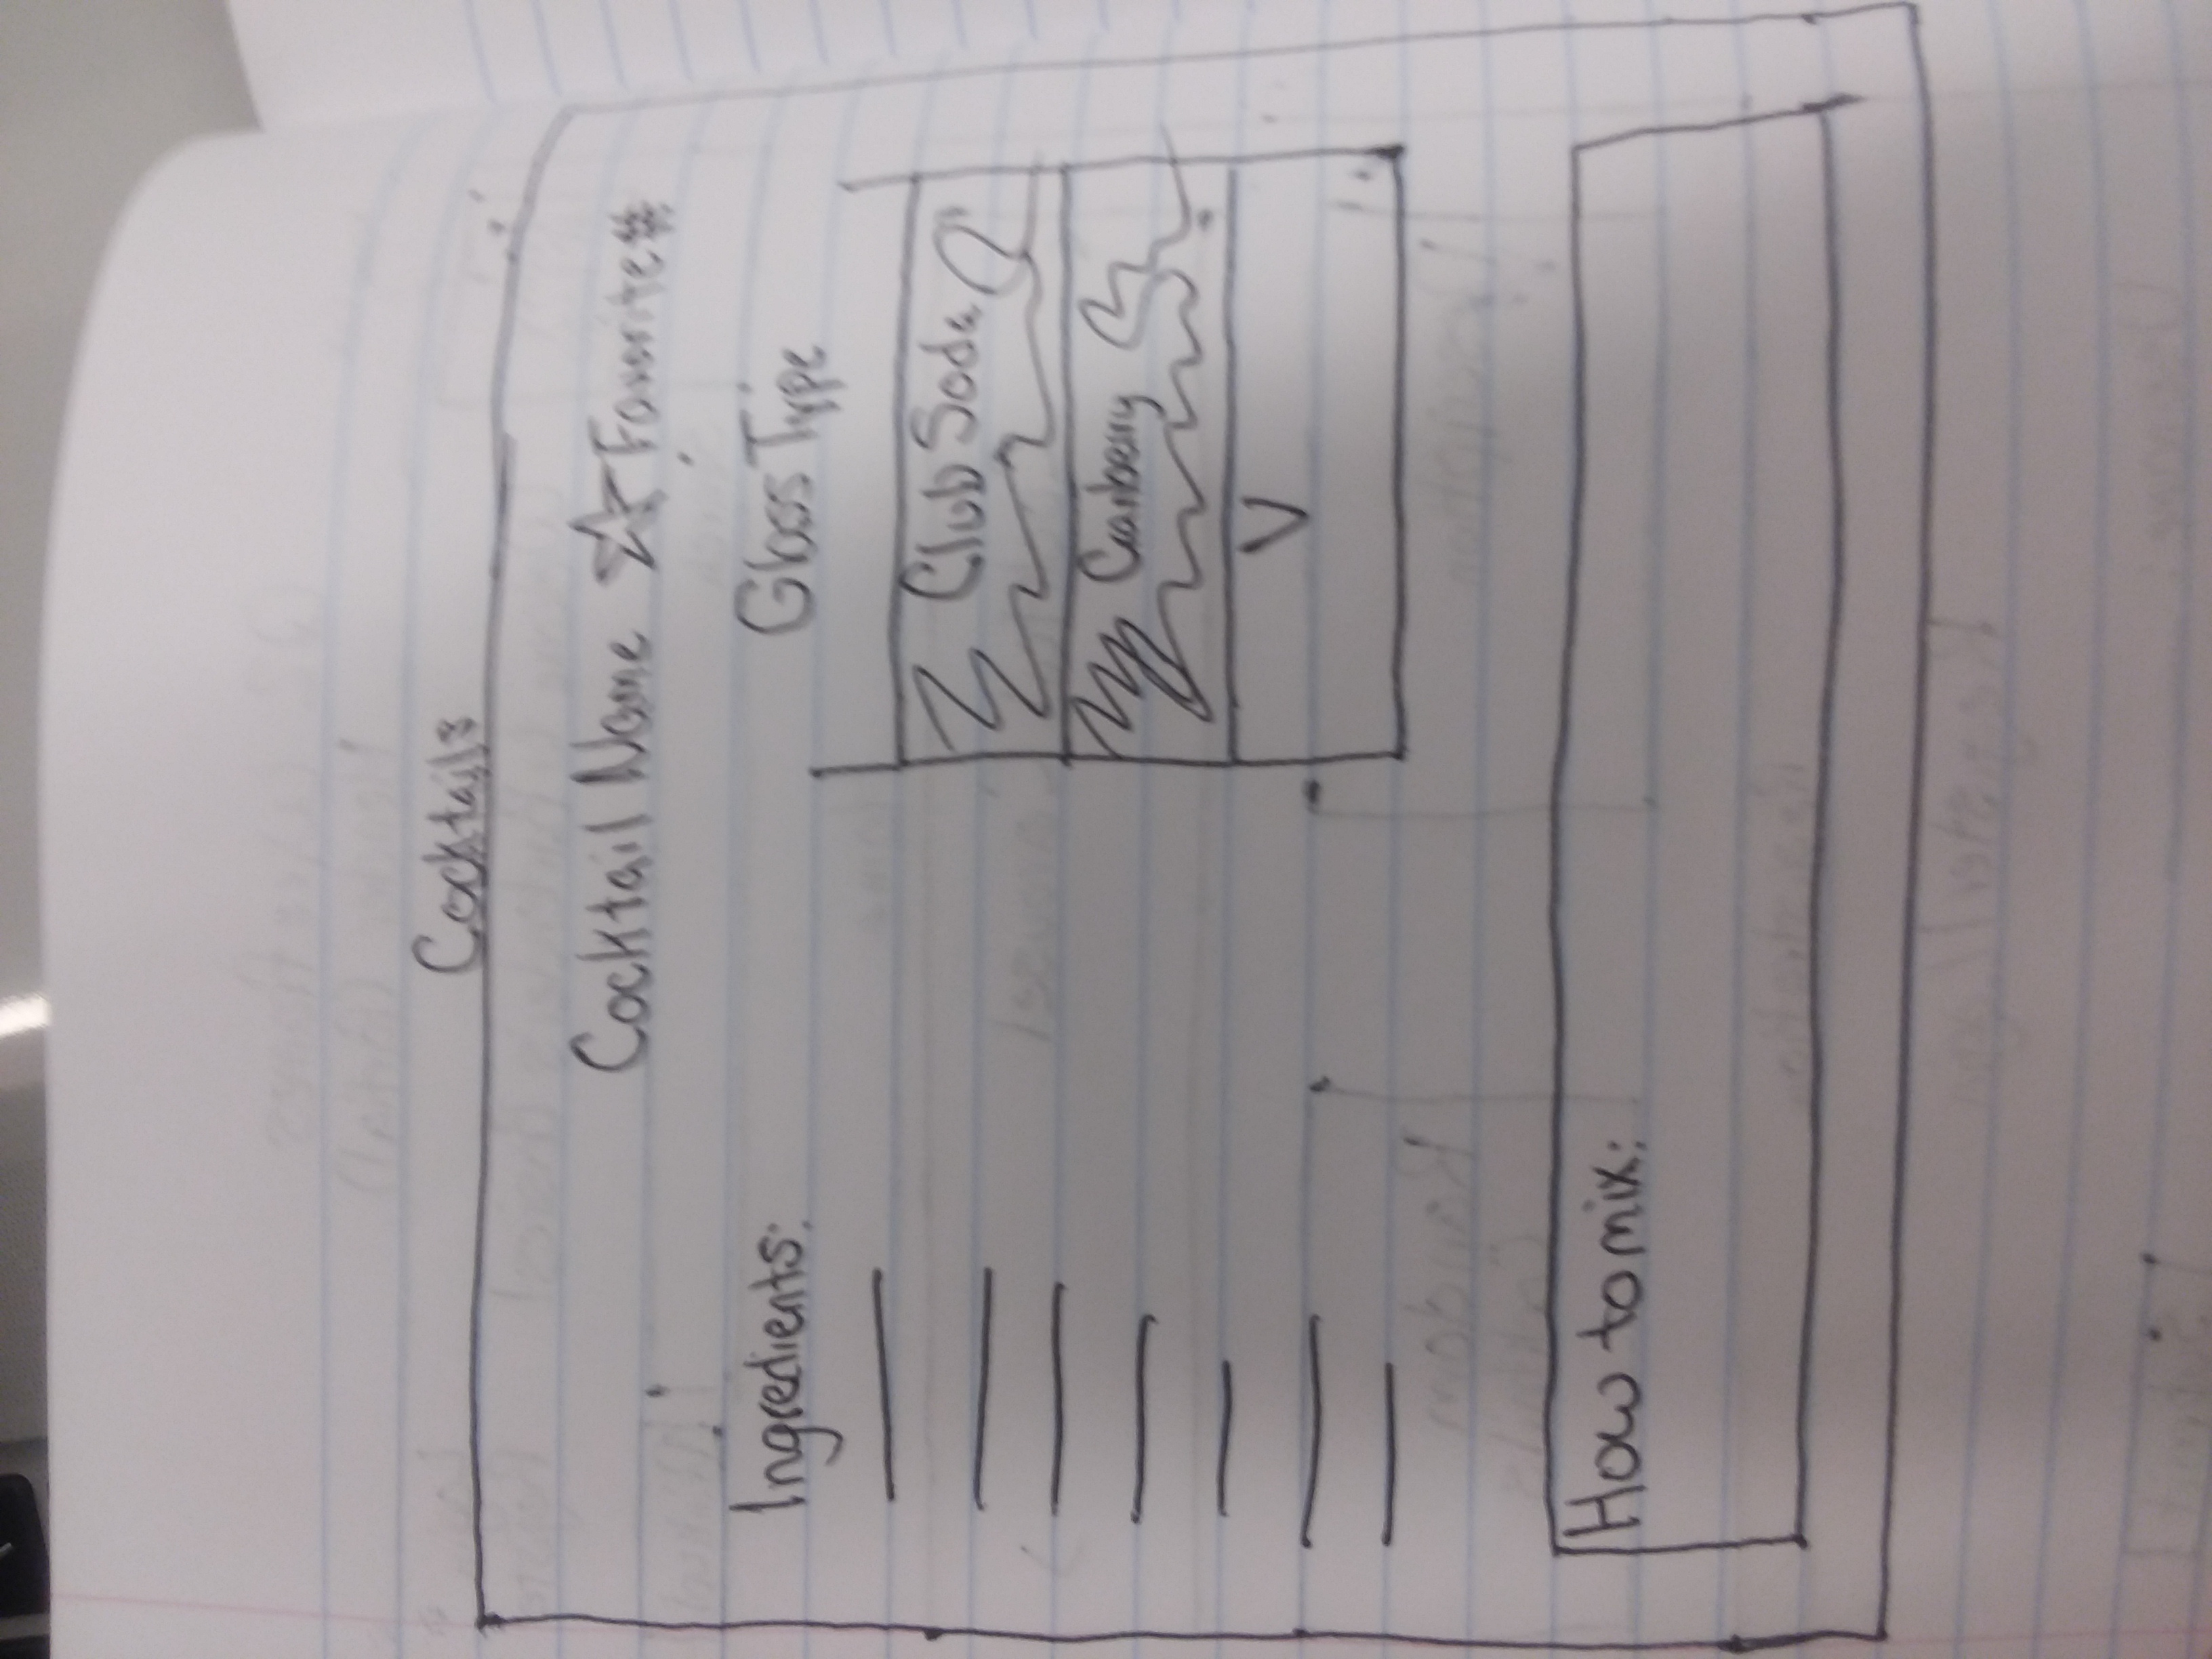 Cocktails
Cocktail Name ☆ Favorite #
Ingredients:
Glass Type
Club Soda
Cranberry
V
How to mix: